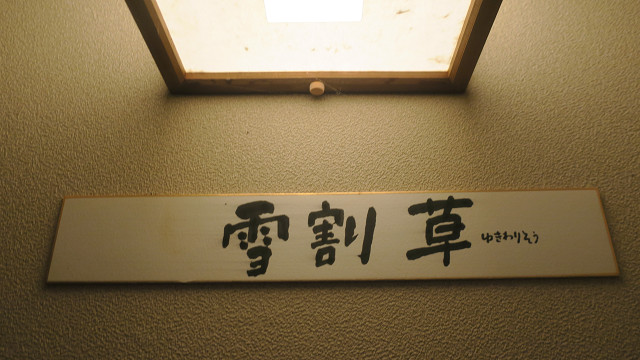 雪割草 ゆきわりそう